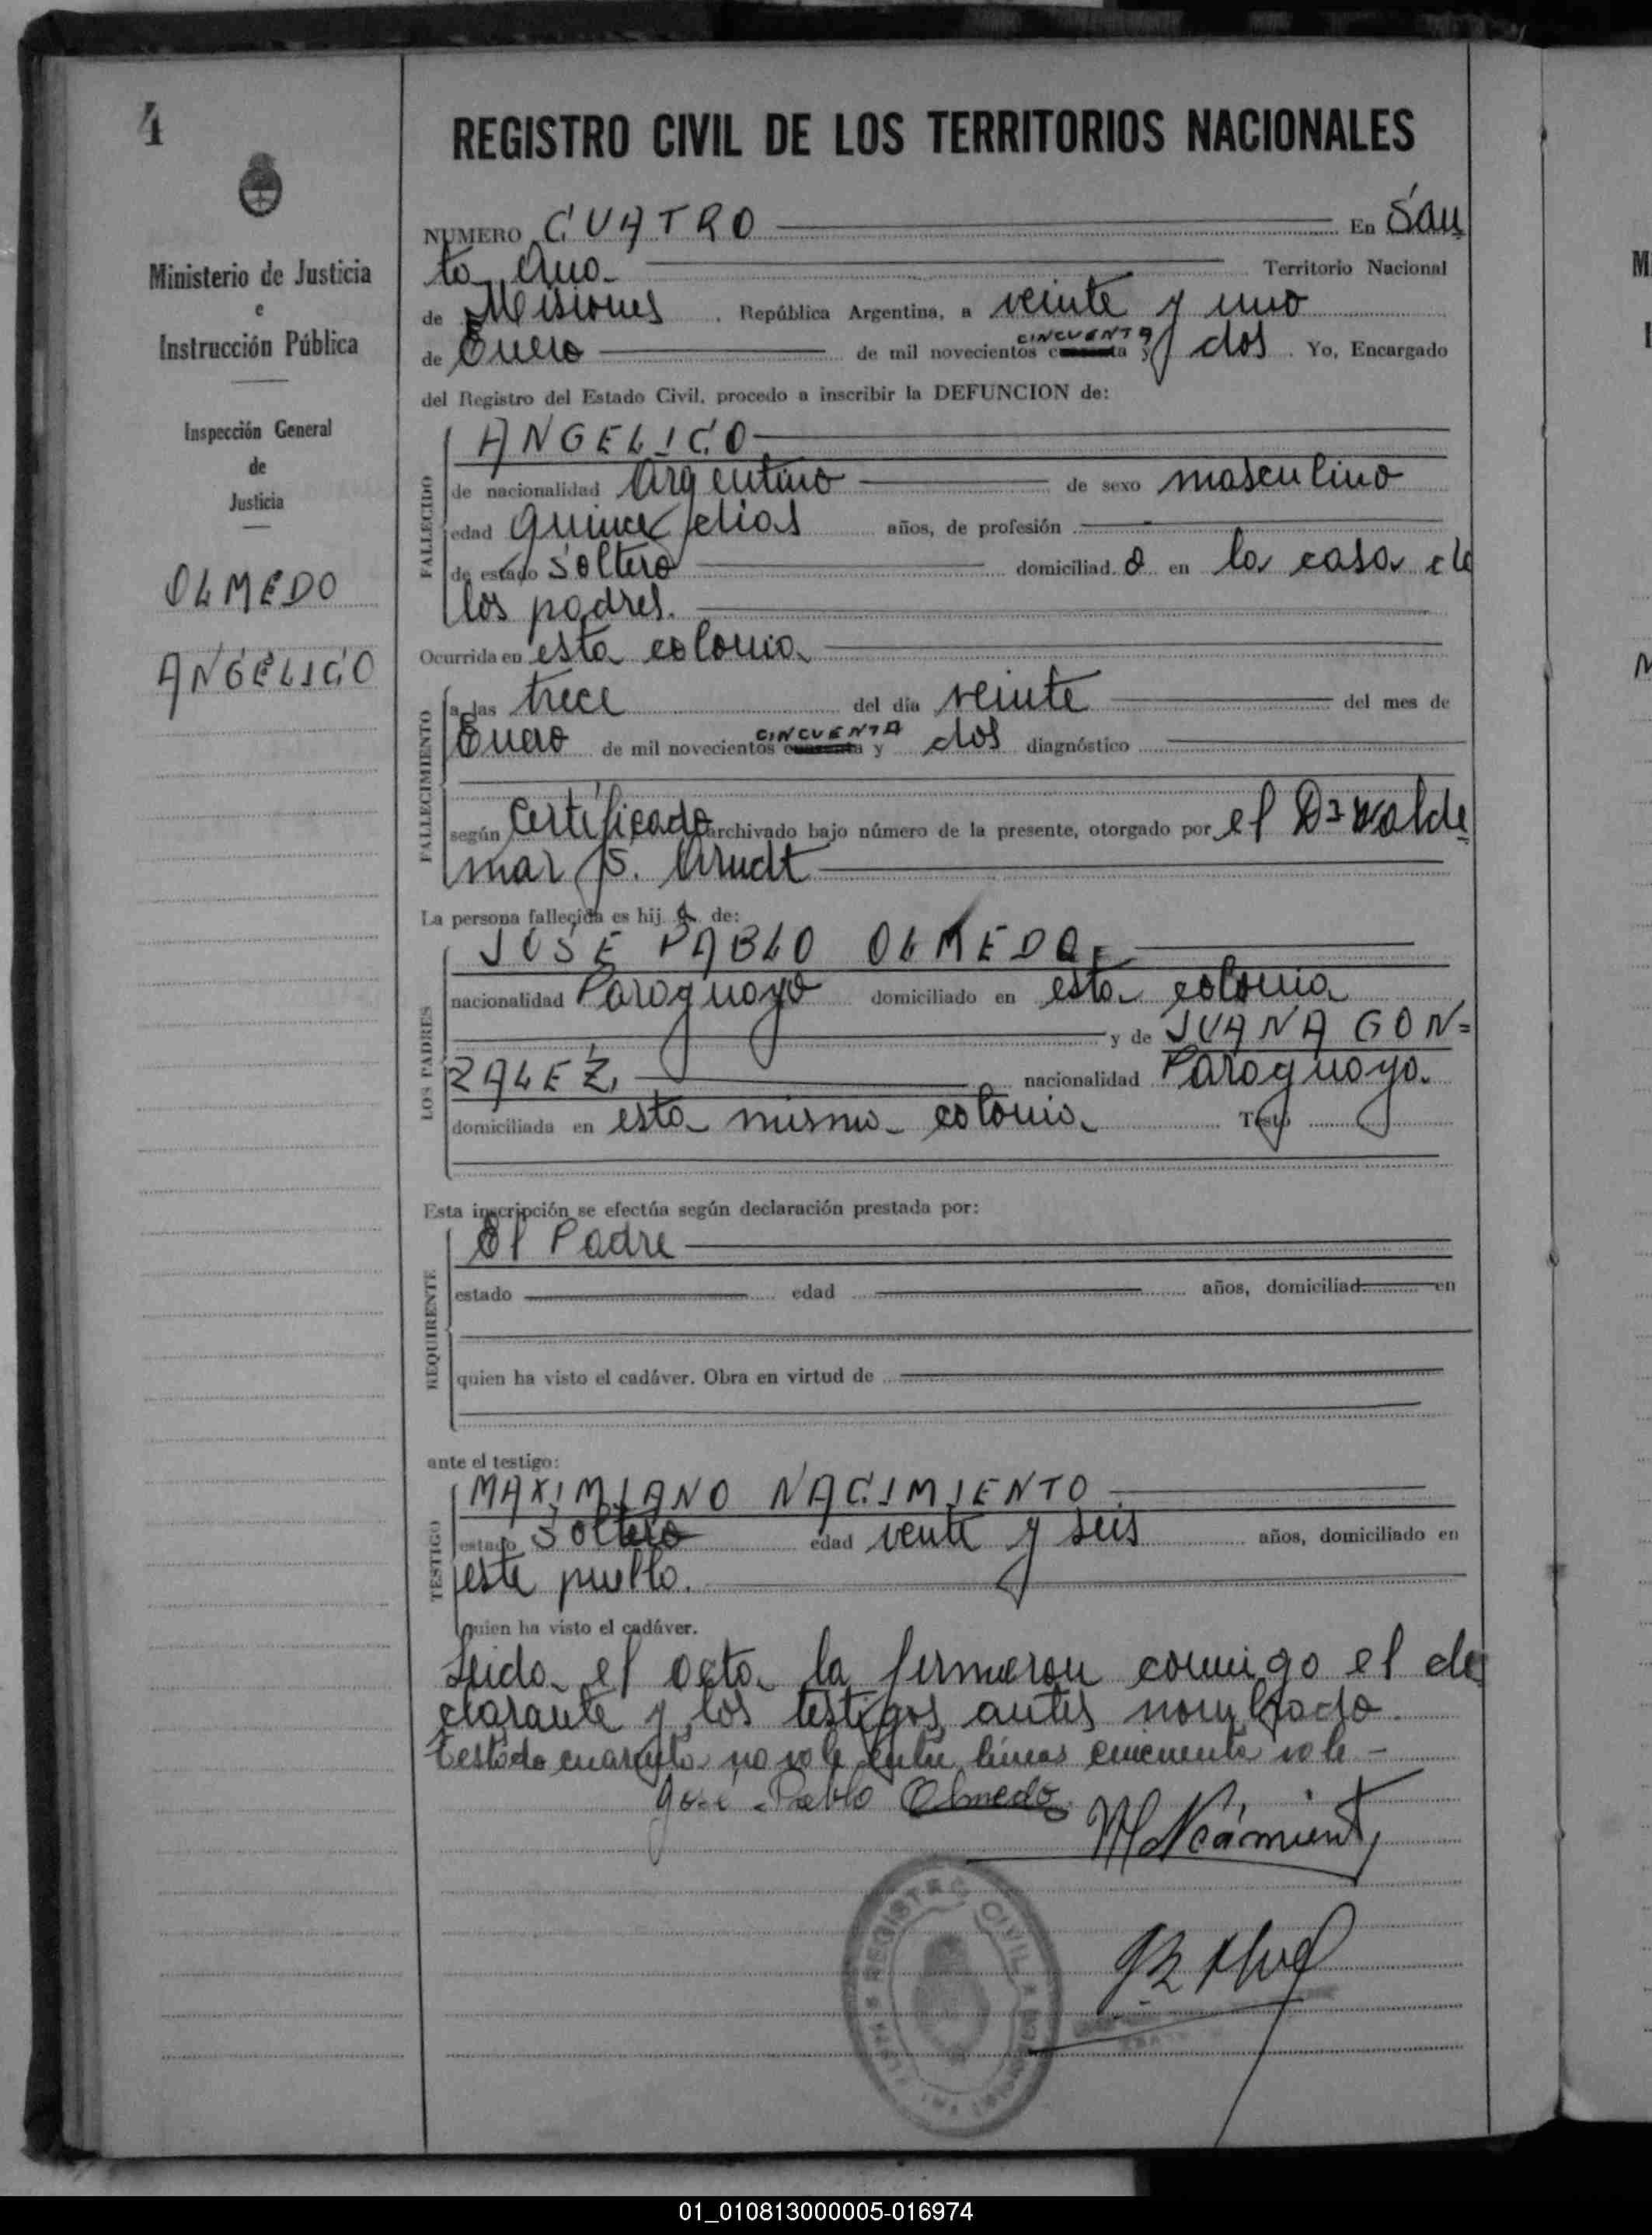 4
Ministerio de Justicia
e
Instrucción Pública
Inspección General
de
Justicia
OLMEDO
ANGELICO
REGISTRO CIVIL DE LOS TERRITORIOS NACIONALES
NUMERO CUATRO En San
ta Ana Territorio Nacional
de Misiones, República Argentina, a veinte y uno
de Enero de mil novecientos CINCUENTA y dos. Yo, Encargado
del Registro del Estado Civil, procedo a inscribir la DEFUNCION de:
FALLECIDO
ANGELICO
de nacionalidad Argentino de sexo masculino
edad quince dias años, de profesión
de estado soltero domiciliad o en la casa de
los padres.
Ocurrida en esta colonia
FALLECIMIENTO
a las trece del día veinte del mes de
Enero de mil novecientos CINCUENTA y dos diagnóstico
según Certificado archivado bajo número de la presente, otorgado por el Dr walde
mar S. Arndt
La persona fallecida es hij o de:
LOS PADRES
JOSE PABLO OLMEDO,
nacionalidad Paraguayo domiciliado en esta colonia
y de JUANA GON=
ZALEZ, nacionalidad Paraguaya.
domiciliada en esta misma colonia Testó
Esta inscripción se efectúa según declaración prestada por:
REQUIRENTE
El Padre
estado edad años, domiciliad en
quien ha visto el cadáver. Obra en virtud de
ante el testigo:
TESTIGO
MAXIMIANO NACIMIENTO
estado soltero edad vente y seis años, domiciliado en
este pueblo.
quien ha visto el cadáver.
Leida el acta la firmaron conmigo el de
clarante y los testigos antes nombrado.
testado cuarenta no vale entre lineas cincuenta vale -
José Pablo Olmedo
M Nacimiento
REGISTRO CIVIL
01_010813000005-016974